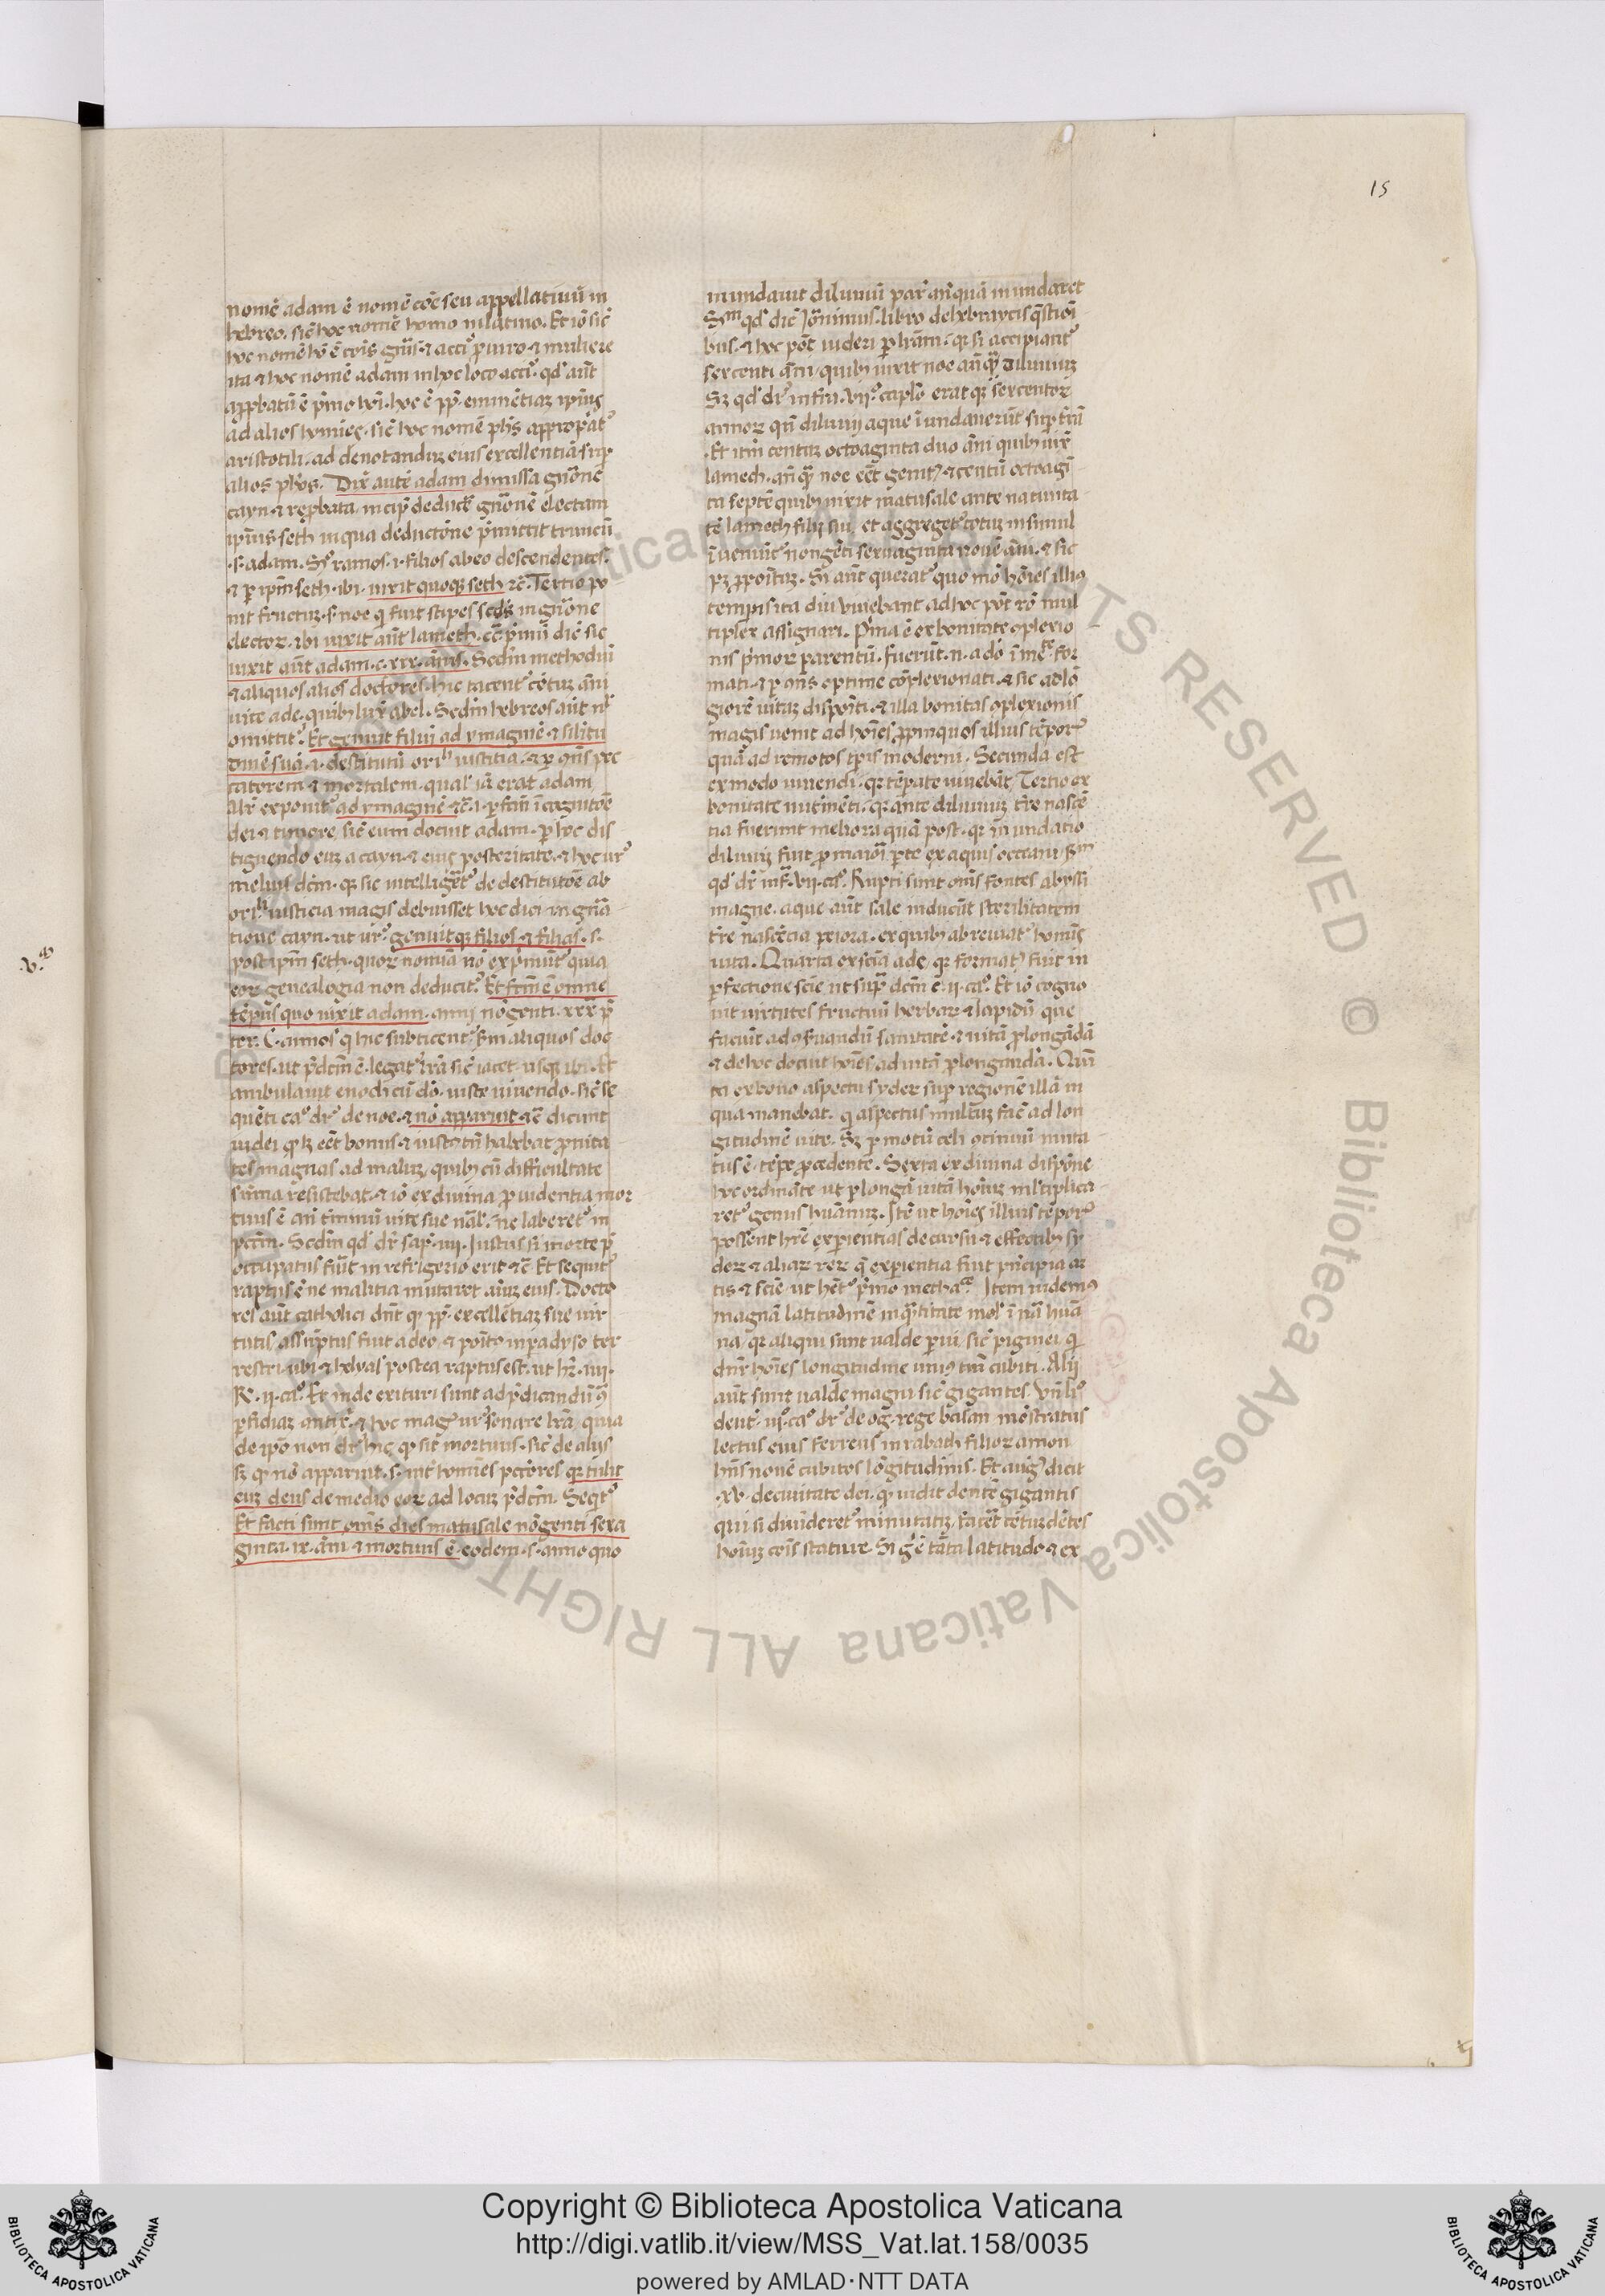 15
nomē adam ē nomē cōe seu appellatiuū in
hebreo. sic̄ hoc nomē homo in latino. Et iō sic̄
hoc nomē hō ē cōis gn̄is ⁊ accip̄ꝰ pro uiro ⁊ muliere
ita ⁊ hoc nomē adam in hoc loco accip̄ꝰ. qd' aūt
app̄batū ē p̄mo hoī. hoc ē pp̄. eminētiaꝫ ipiꝰ
ad alios homīes. sic̄ hoc nomē ph̄s app̄op̄atꝰ
aristotili. ad denotanduꝫ eius excellentiā sup̄
alios ph̄os. Dix̄ autē adam dimissa gn̄one
cayn ⁊ rep̄bata. incip̄ deduc̄e gn̄onē electam
ipiꝰ seth in qua deductōne p̄mittit truncū
.s. adam. So ramos .i. filios ab eo descendentes.
⁊ p ip̄m seth. ibi. uixit quoqꝫ seth ⁊c̄. Tertio po
nit fructuꝫ .s. noe q̄ fuit stipes scd's in gn̄one
electoꝝ. ibi uixit aūt lameth. cc̄ p̄mū dic̄ sic
uixit aūt adam .c. xxx. ānis. Scd'm methodiū
⁊ aliquos alios doctores. hic tacent̄ cētuꝫ āni
uite ade. quibꝫ lux̄ abel. Scd'm hebreos aūt nl'
omittit̄ꝰ. Et genuit filiū ad ymaginē ⁊ silitu
dinē suā .i. destitutū ori' iustitia. ⁊ p 9n̄s pec
catorem ⁊ mortalem. qual' iā erat adam
Al'r exponit̄ꝰ ad ymaginē ⁊c̄ .i. p fām̄ ī cognitōe
dei ⁊ timore. sic̄ eum docuit adam. p hoc dis
tiguendo euꝫ a cayn ⁊ eius posteritate. ⁊ hoc urꝰ
melius dc̄m. qꝫ sic intelligēt̄ꝰ de destitutōe ab
ori' iusticia magis debuisset hoc dici in gn̄a
tione cayn. ut ur'. genuitqꝫ filios ⁊ filias .s.
post ipm̄ seth. quoꝝ nomīa nō exp̄munt̄ꝰ quia
eoꝝ genealogia non deducit̄ꝰ. Et fc̄m ē omne
tēpus quo uixit adam. anni nōgenti. xxx p̄
ter. C annos q̄ hic subticent̄. Scd'm aliquos doc
tores. ut p̄dc̄m ē. legat̄ꝰ lr̄a sic̄ iacet. usqꝫ ibi. Et
ambulauit enoch cū dō. iuste uiuendo. sic̄ se
quēti ca° dr̄ꝰ de noe. ⁊ nō apparuit ⁊c̄ dicunt
iudei qꝫ lꝫ eēt bonus ⁊ iustꝰ tn̄ habebat p̄uita
tes magnas ad maluꝫ. quibꝫ cū difficultate
sūma resistebat. ⁊ iō ex diuina p̄uidentia mor
tuus ē an̄ t̄minū uite sue nāl'. ne laberet̄ꝰ in
pccm̄. Scd'm qd' dr̄ sap̄. iiij. Iustus si morte p̄
occupatus fu'it in refrigerio erit ⁊c̄ Et sequit̄ꝰ
raptus ē ne malitia mutaret aīuꝫ eius. Docto
res aūt catholici dn̄t qꝫ pp̄. excellētiaꝫ sue uir
tutis assūptus fuit a deo. ⁊ poītꝰ in p̄adyso ter
restri. ubi ⁊ helyas postea raptus est. ut hr̄ .iiij.
R. ii. ca°. Et inde exituri sunt ad p̄dicandū 9
p̄fidiaꝫ antix̄. ⁊ hoc mag' ur' sonare lr̄a. quia
de ipo non dr̄ hic qꝫ sit mortuus. sic̄ de aliis
sꝫ qꝫ nō apparuit .s. int̄ homīes pctōres qꝫ tulit
euꝫ deus de medio eoꝝ ad locuꝫ p̄dc̄m. Seqit̄ꝰ
Et facti sunt om̄s dies matusale nōgenti sexa
ginta .ix. āni ⁊ mortuus ē. eodem .s. anno quo
inundauit diluuiū par̄ anq̄uā inundaret
Scdm qd' dic̄ Ieronimus. libro de hebraycis q̄stioī
bus. ⁊ hoc pōt uideri p lr̄am. qꝫ si accipiant̄ꝰ
sexcenti āni. quibꝫ uixit noe an̄ qꝫ diluuiuꝫ
Sꝫ qd' dr̄ infra .vij°. capl'o erat qꝫ sexcentoꝝ
annoꝝ qn̄ diluuij aque īundauerūt sup̄ t̄rā
Et itm̄ centuꝫ octoaginta duo āni quibꝫ uix̄
lamech. an̄ qꝫ noe eēt genitꝰ. ⁊ centū octoagī
ta septē quibꝫ uixit matusale ante natiuita
tē lamech filij sui. et aggreget̄ꝰ totuꝫ in simul
īueniūt̄ nongēti sexaginta nouē āni. ⁊ sic
pꝫ p̄poītuꝫ. Si aūt querat̄ꝰ quo mō hoīes illiꝰ
tempis ita diu uiuebant ad hoc pōt rō mul
tiplex assignari. Pīma ē ex bonitate 9plexio
nis p̄moꝝ parentū. fuerūt .n. a dō īmed̄ for
mati. ⁊ p 9n̄s optime cōplexionati. ⁊ sic ad lō
giorē uitaꝫ dispoīti. ⁊ illa bonitas 9plexionis
magis uenit ad hoīes p̄pinquos illius tēporꝰ
quā ad remotos tp̄is moderni. Secunda est
ex modo uiuendi. qꝫ tēpate uiuebāt. Tertio ex
bonitate nut'mēti. qꝫ ante diluuiuꝫ t̄re nascē
tia fuerunt meliora quā post. qꝫ in undatio
diluuij fuit p maioī p̄te ex aquis occeani. Scdm
qd' dr̄ inf̄. vii. ca°. Rupti sunt om̄s fontes abyssi
magne. aque aūt salse inducūt sterilitatem
t̄re nascēcia peiora. ex quibꝫ abreuiat̄ꝰ homīs
uita. Quarta ex scīa ade. qꝫ formatꝰ fuit in
p̄fectione scīe ut sup̄ dc̄m ē .ii. ca°. Et iō cogno
uit uirtutes fructuū herbaꝝ ⁊ lapidū que
faciūt ad 9s̄uandū sanitatē ⁊ uitā p̄longādā
⁊ de hoc docuit hoīes ad uitā p̄longandā. Quī
ta ex bono aspectu syderū sup̄ regionē illā in
qua manebat. q̄ aspectus multuꝫ fac̄ ad lon
gitudinē uite. Sꝫ p motū celi 9tinuū muta
tus ē. tēpe p̄cedente. Sexta ex diuina dispōne
hoc ordināte ut p longā uitā hoīuꝫ ml'tiplica
ret̄ꝰ genus hūanuꝫ. Itē ut hoīes illius tēporꝰ
possent hr̄e exp̄ientias de cursu ⁊ effectibꝫ sy
deꝝ ⁊ aliaꝝ reꝝ q̄ exp̄ientia fiūt p̄ncipia ar
tis ⁊ scīe. ut het̄ꝰ p̄mo metha^ce. Item uidemꝰ
magnā latitudinē in q̄ntitate mol' ī nā huā
na. qꝫ aliqui sunt ualde p̄ui. sic̄ piginei. q̄
dn̄r hoīes longitudine uniꝰ tm̄ cubiti. Alij
aūt sunt ualde magni sic̄ gigantes. Vn̄ lꝫ
deut̄. iij°. ca° dr̄ꝰ de og rege basan mōstratus
lectus eius ferreus in rabath filioꝝ amon
hn̄s nouē cubitos lōgitudinis. Et aug' dicit
.xv. de ciuitate dei. qꝫ uidit dentē gigantis
qui si diuideret̄ꝰ minutatiꝫ. facēt cētuꝫ dētes
hoīuꝫ cōis stature. Si g̊ ē tāta latitudo ⁊ ex
.v.
Copyright © Biblioteca Apostolica Vaticana
http://digi.vatlib.it/view/MSS_Vat.lat.158/0035
powered by AMLAD·NTT DATA
BIBLIOTECA APOSTOLICA VATICANA
BIBLIOTECA APOSTOLICA VATICANA